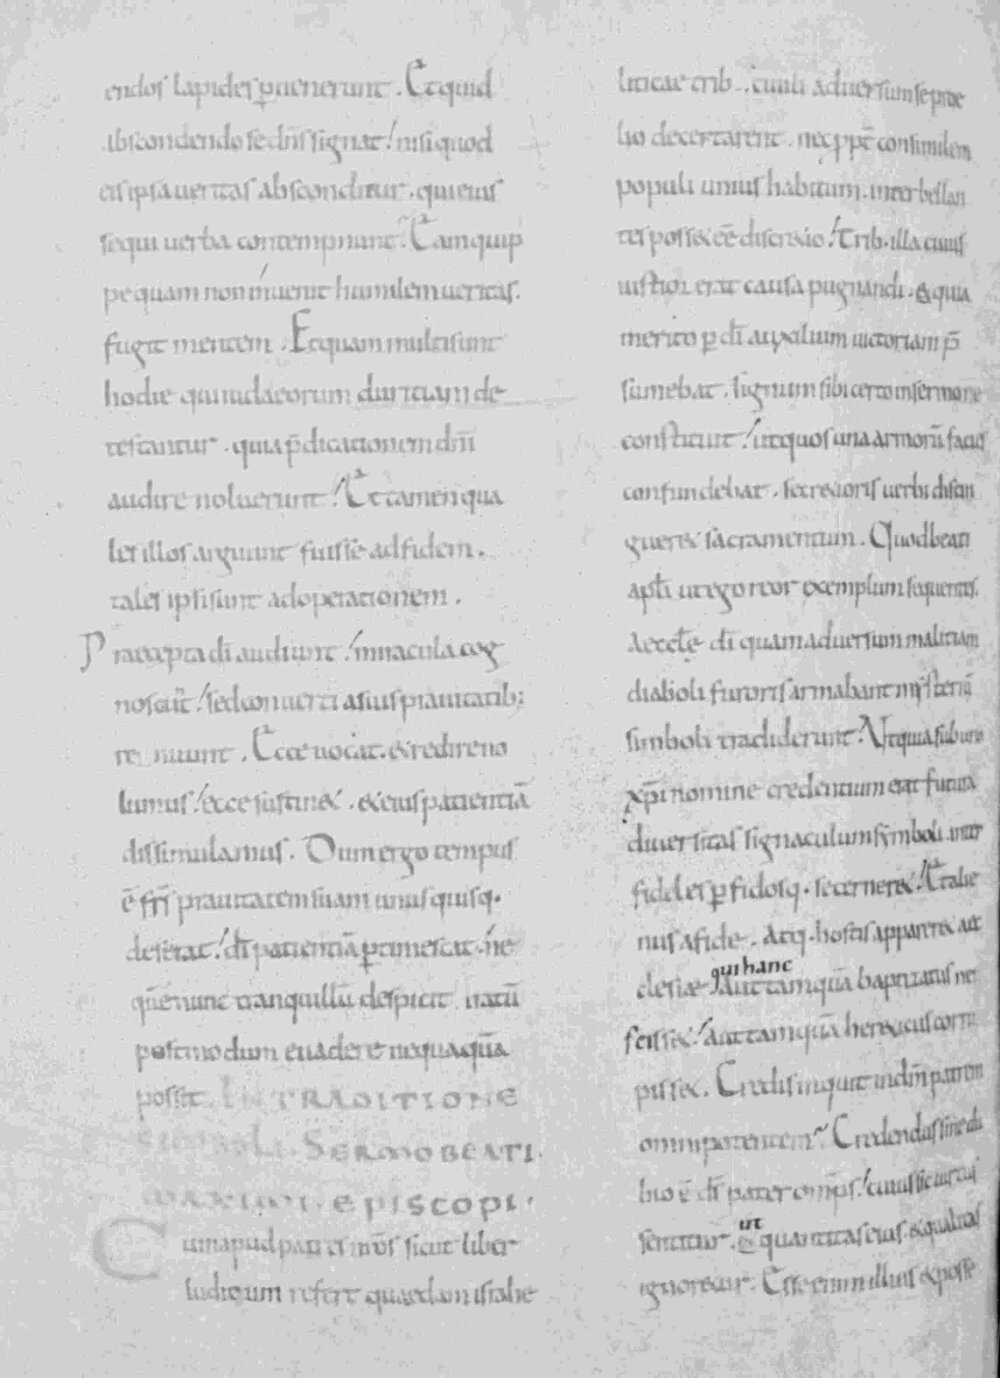 endos lapides puenerunt. Et quid
abscondendo se dñs signat! nisi quod
eis ipsa ueritas absconditur. qui eius
sequi uerba contempnunt. Eam quip
pe quam non inuenit humilem ueritas.
fugit mentem. Et quam multi sunt
hodie qui iudaeorum duritiam de
testantur. quia p̄dicationem dn̄i
audire noluerunt! Et tamen qua
les illos arguunt fuisse ad fidem.
tales ipsi sunt ad operationem.
Praecepta dī audiunt! miracula cog
noscūt! sed conuerti a suis prauitatib;
re nuunt. Ecce uocat. & redire no
lumus! ecce sustin&. & eius patientiā
dissimulamus. Dum ergo tempus
ē fr̄s prauitatem suam unusquisq.
deserat! dī patientiā ptimescat. ne
quē nunc tranquillū despicit. iratū
postmodum euadere nequaquā
possit. IN TRADITIONE
SIMBOLI. SERMO BEATI
MAXIMI. EPISCOPI.
Cum apud patres nr̄os sicut liber
iudicum refert quaedam israhe
liticae trib. ciuili aduersum se proe
lio decertarent. nec ppt̄ consimilem
populi unius habitum. inter bellan
tes poss& eē discr&io! Trib. illa cuius
iustior erat causa pugnandi. & quia
merito p dī auxilium uictoriam p̄
sumebat. signum sibi certo in sermone
constituit! ut quos una armorū facies
confundebat. secr&ioris uerbi distin
guer& sacramentum. Quod beati
apl̄i ut ego reor exemplum sequentes.
aeccl̄ę dī quam aduersum malitiam
diaboli furoris armabant mysteriū
simboli tradiderunt. Ut quia sub uno
xp̄i nomine credentium erat futura
diuersitas signaculum symboli. inter
fideles pfidosq. secerner&! Et alie
nus a fide. atq. hostis apparer& aec
clesiae qui hanc aut tamquā baptizatus nes
sciss&! aut tamquā her&icus corru
piss&. Credis inquit in dn̄m patrem
omnipotentem. Credendus sine du
bio ē dī pater omp̄s! cuius sic uirtus
sentitur. ut & quantitas eius. & qualitas
ignor&ur. Esse enim illius & posse